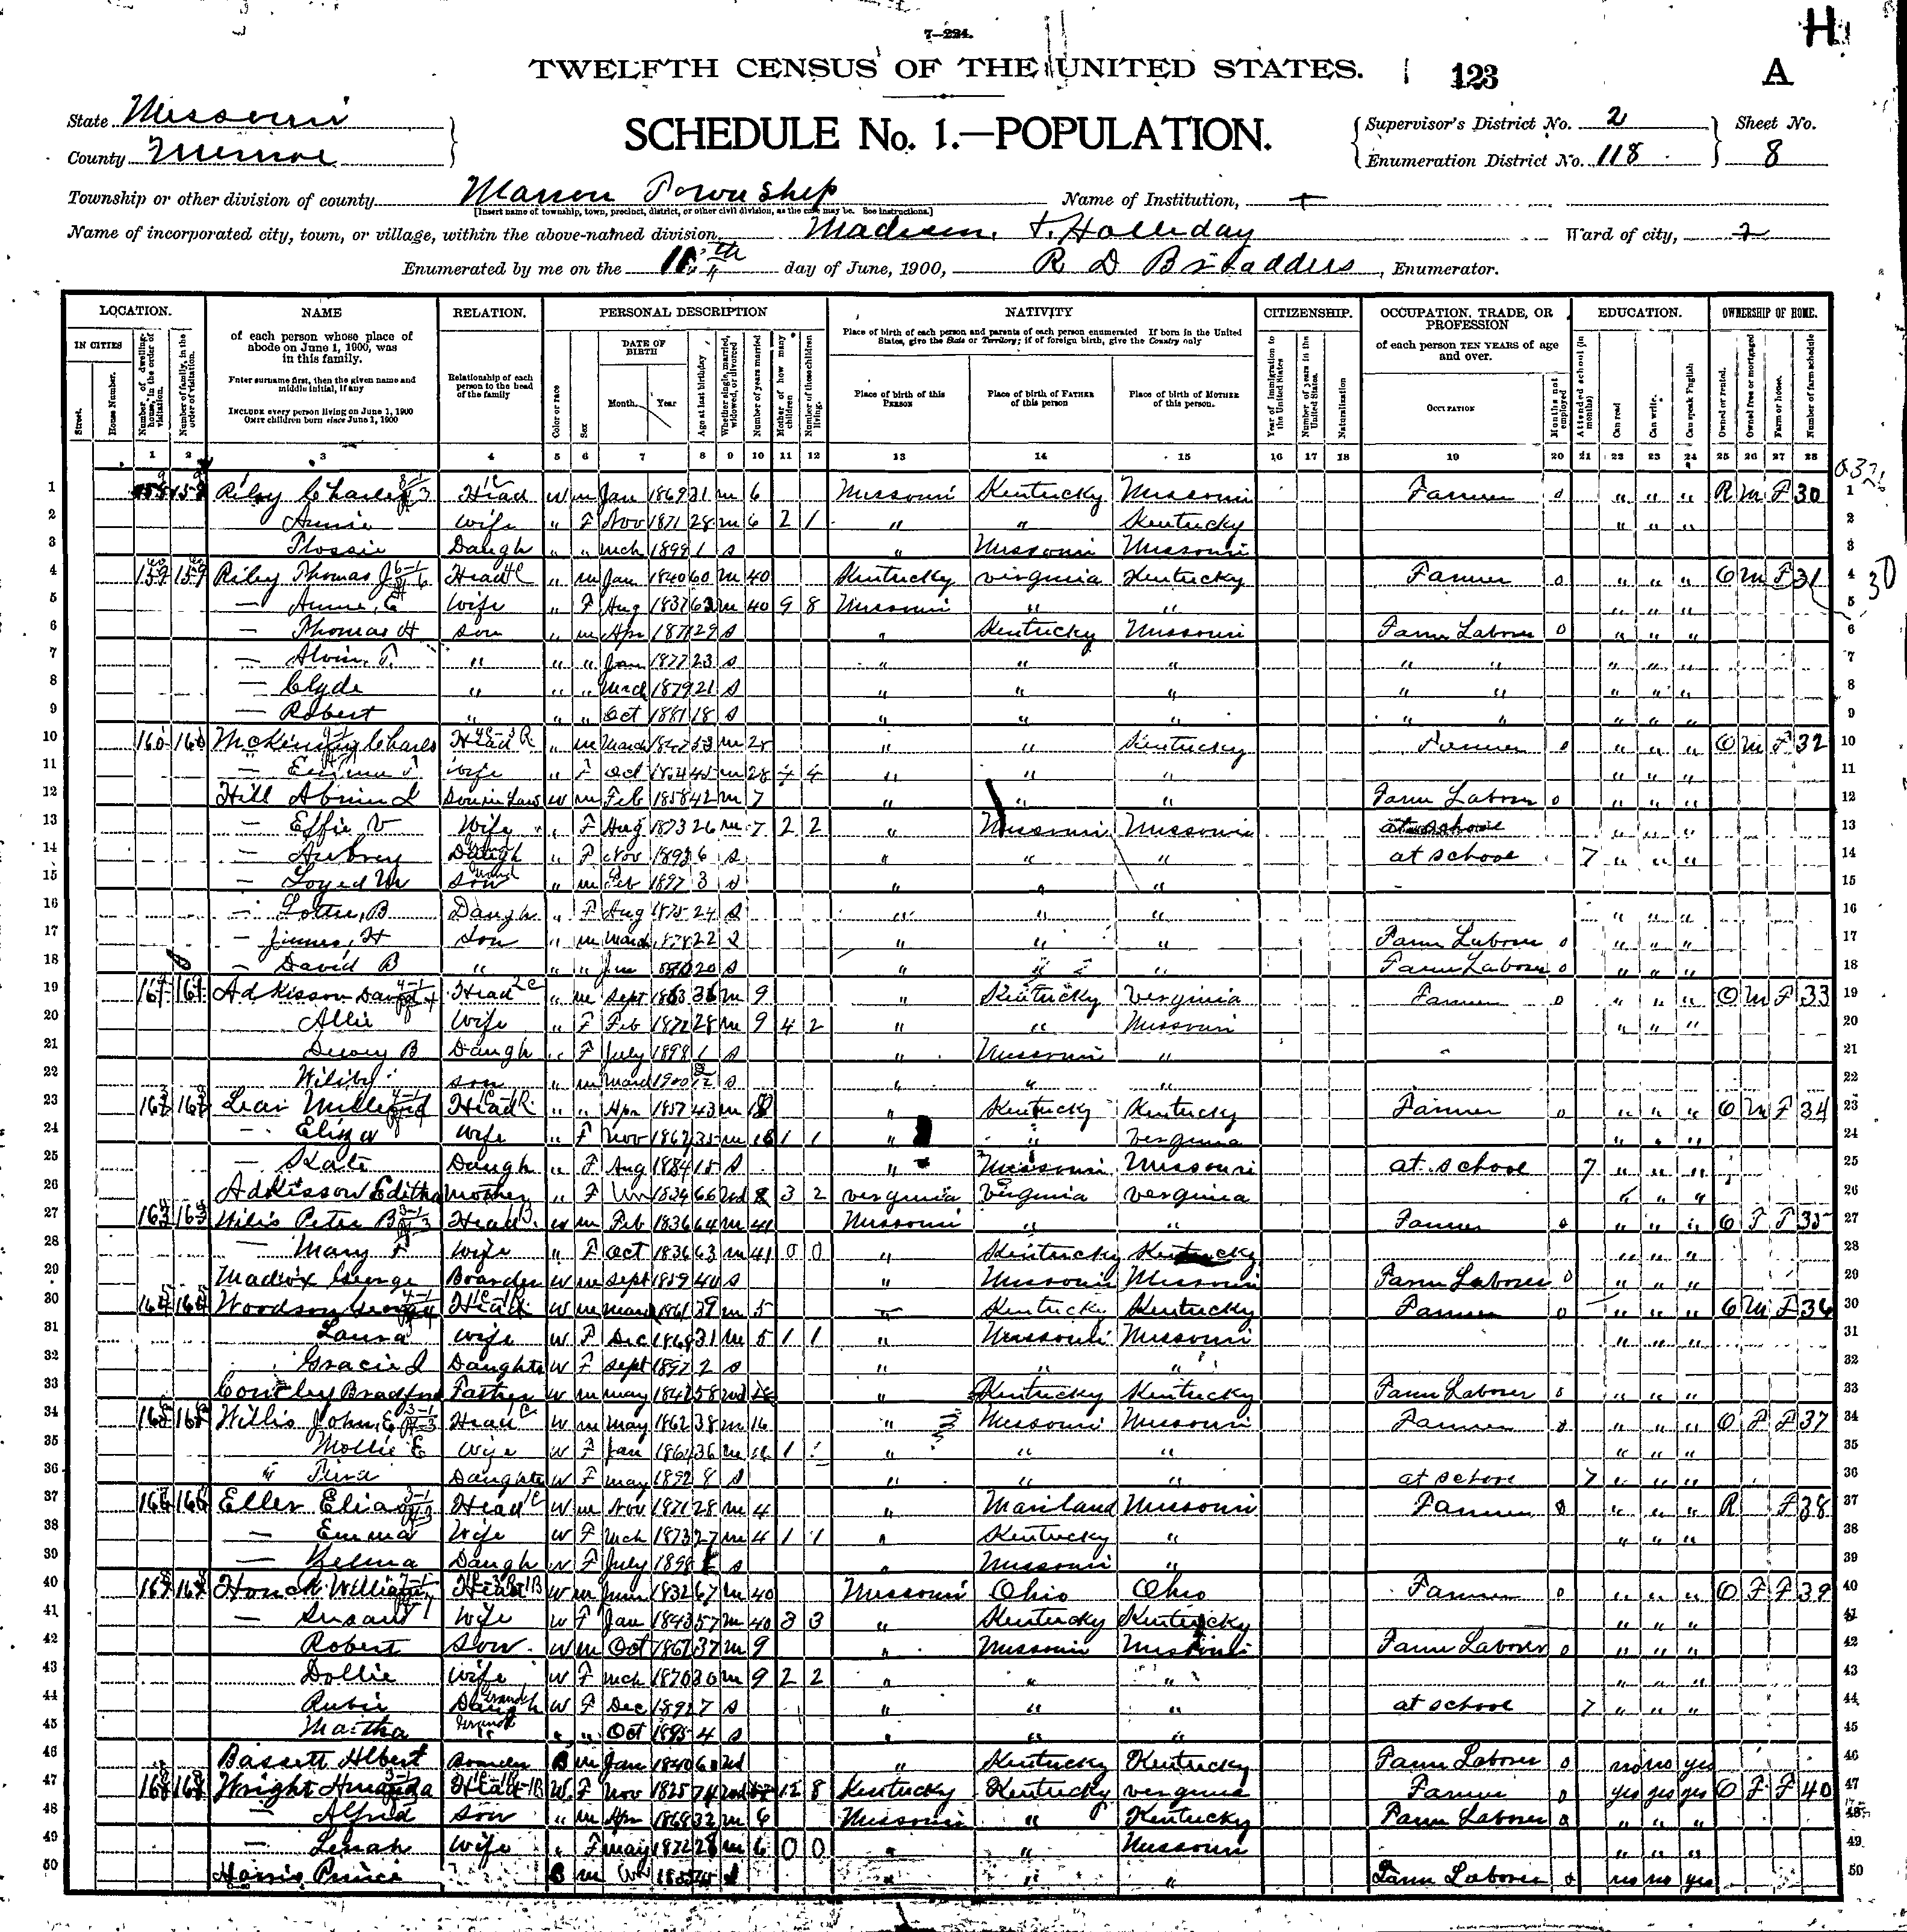 7—224.
H
TWELFTH CENSUS OF THE UNITED STATES.
123
A
State Missouri
County Monroe
SCHEDULE No. 1.—POPULATION.
Supervisor's District No. 2
Enumeration District No. 118
Sheet No.
8
Township or other division of county Marion Township
[Insert name of township, town, precinct, district, or other civil division, as the case may be. See instructions.]
Name of Institution,
Name of incorporated city, town, or village, within the above-named division, Madison Holliday
Ward of city,
Enumerated by me on the day of June, 1900, R D Enumerator.
LOCATION.
IN CITIES
Street.
House Number.
Number of dwelling-house, in the order of visitation.
Number of family, in the order of visitation.
NAME
of each person whose place of abode on June 1, 1900, was in this family.
Enter surname first, then the given name and middle initial, if any
INCLUDE every person living on June 1, 1900
OMIT children born since June 1, 1900
RELATION.
Relationship of each person to the head of the family
PERSONAL DESCRIPTION
Color or race
Sex
DATE OF BIRTH
Month.
Year
Age at last birthday
Whether single, married, widowed, or divorced
Number of years married
Mother of how many children
Number of these children living.
NATIVITY
Place of birth of each person and parents of each person enumerated If born in the United States, give the State or Territory; if of foreign birth, give the Country only
Place of birth of this PERSON
Place of birth of FATHER of this person
Place of birth of MOTHER of this person.
CITIZENSHIP.
Year of immigration to the United States
Number of years in the United States.
Naturalization
OCCUPATION, TRADE, OR PROFESSION
of each person TEN YEARS of age and over.
OCCUPATION
Months not employed
EDUCATION.
Attended school (in months)
Can read
Can write.
Can speak English
OWNERSHIP OF HOME.
Owned or rented.
Owned free or mortgaged
Farm or house.
Number of farm schedule
1 2 3 4 5 6 7 8 9 10 11 12 13 14 15 16 17 18 19 20 21 22 23 24 25 26 27 28
1 Riley Charles Head W m Jan 1869 31 m 6 Missouri Kentucky Missouri Farmer 0 " " " R m F 30 1
2 Annie Wife " F Nov 1871 28 m 6 2 1 " " Kentucky " " " 2
3 Flossie Daugh " " Mch 1899 1 S " Missouri Missouri 3
4 159 159 Riley Thomas J Head " m Jan 1840 60 m 40 Kentucky Virginia Kentucky Farmer 0 " " " O m F 31 4
5 — Annie, E Wife " F Aug 1837 62 m 40 9 8 Missouri " " " " " 5
6 — Thomas H Son " m Apr 1871 29 S " Kentucky Missouri Farm Laborer 0 " " " 6
7 — Alvin, T. " " " Jan 1877 23 S " " " " " " " " 7
8 — Clyde " " " March 1879 21 S " " " " " " " " 8
9 — Robert " " " Oct 1881 18 S " " " " " " " " 9
10 160 160 McKinney Charles Head " m March 1847 53 m 28 " " Kentucky Farmer 0 " " " O m F 32 10
11 — Emma J Wife " F Oct 1854 45 m 28 4 4 " " " " " " 11
12 Hill Son in Law W m Feb 1858 42 m 7 " " " Farm Laborer 0 " " " 12
13 — Effie V Wife " F Aug 1873 26 m 7 2 2 " Missouri Missouri " " " 13
14 — Aubrey Grand Daugh " F Nov 1893 6 S " " " at school 7 " " " 14
15 — Loyed M Grand Son " m Feb 1897 3 S " " " 15
16 — Lottie, B Daugh " F Aug 1875 24 S " " " " " " 16
17 — James, H Son " m March 1878 22 S " " " Farm Laborer 0 " " " 17
18 — David B " " " 20 S " " " Farm Laborer 0 " " " 18
19 161 161 Adkisson Head " m Sept 1863 36 m 9 " Kentucky Virginia Farmer 0 " " " O m F 33 19
20 Allie Wife " F Feb 1872 28 m 9 4 2 " " Missouri " " " 20
21 Dewey B Daugh " F July 1898 1 S " Missouri " 21
22 Son " m March 1900 S " " " 22
23 162 162 Head " " Apr 1857 43 m 18 " Kentucky Kentucky Farmer 0 " " " O m F 34 23
24 — Eliza Wife " F Nov m 18 1 1 " " Virginia " " " 24
25 — Kate Daugh " F Aug 1884 15 S " Missouri Missouri at school 7 " " " 25
26 Adkisson Editha Mother " F Un 1834 66 Wd 3 2 Virginia Virginia Virginia " " " 26
27 163 163 Willis Peter B Head W m Feb 1836 64 m 41 Missouri " " Farmer 0 " " " O F F 35 27
28 — Mary F Wife " F Oct 1836 63 m 41 0 0 " Kentucky Kentucky " " " 28
29 Maddox George Boarder W m Sept 1859 40 S " Missouri Missouri Farm Laborer 0 " " " 29
30 164 164 Woodson George Head W m Mar 1861 39 m 5 Kentucky Kentucky Farmer 0 " " " O m F 36 30
31 Laura Wife W F Dec 1868 31 m 5 1 1 " Missouri Missouri " " " 31
32 Gracie I Daughter W F Sept 1897 2 S " " " 32
33 Bradford Father W m May 1842 58 Wd " Kentucky Kentucky Farm Laborer 0 " " " 33
34 165 165 Willis John, E Head W m May 1862 38 m 16 " Missouri Missouri Farmer 0 " " " O F F 37 34
35 Mollie E Wife W F Jan 1864 36 m 16 1 1 " " " " " " 35
36 " Daughter W F May 1892 8 S " " " at school 7 " " " 36
37 166 166 Eller Head W m Nov 1871 28 m 4 " Mariland Missouri Farmer 0 " " " R F 38 37
38 — Emma Wife W F Mch 1873 27 m 4 1 1 " Kentucky " " " " 38
39 — Velma Daugh W F July S " Missouri " 39
40 167 167 Houck William Head W m June 1832 67 m 40 Missouri Ohio Ohio Farmer 0 " " " O F F 39 40
41 — Susan Wife W F Jan 1843 57 m 40 3 3 " Kentucky Kentucky " " " 41
42 Robert Son W m Oct m 9 " Missouri Missouri Farm Laborer 0 " " " 42
43 Dollie Wife W F Mch 1870 30 m 9 2 2 " " " " " " 43
44 Rubie Grand Daugh W F Dec 1892 7 S " " " at school 7 " " " 44
45 Martha Grand " " " Oct 1895 4 S " " " 45
46 Bassett Albert Boarder B m Jan 1840 60 Wd " Kentucky Kentucky Farm Laborer 0 no no yes 46
47 168 168 Wright Head W F Nov 1825 74 Wd 12 8 Kentucky Kentucky Virginia Farmer 0 yes yes yes O F F 40 47
48 — Alfred Son " m Apr 1868 32 m 6 Missouri " Kentucky Farm Laborer 0 " " " 48
49 — Lenah Wife " F May 1872 28 m 6 0 0 " " Missouri " " " 49
50 Harris Prince B m " " " Farm Laborer 0 no no yes 50